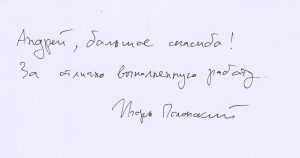 Андрей, большое спасибо!
За отлично выполненную работу.
Игорь